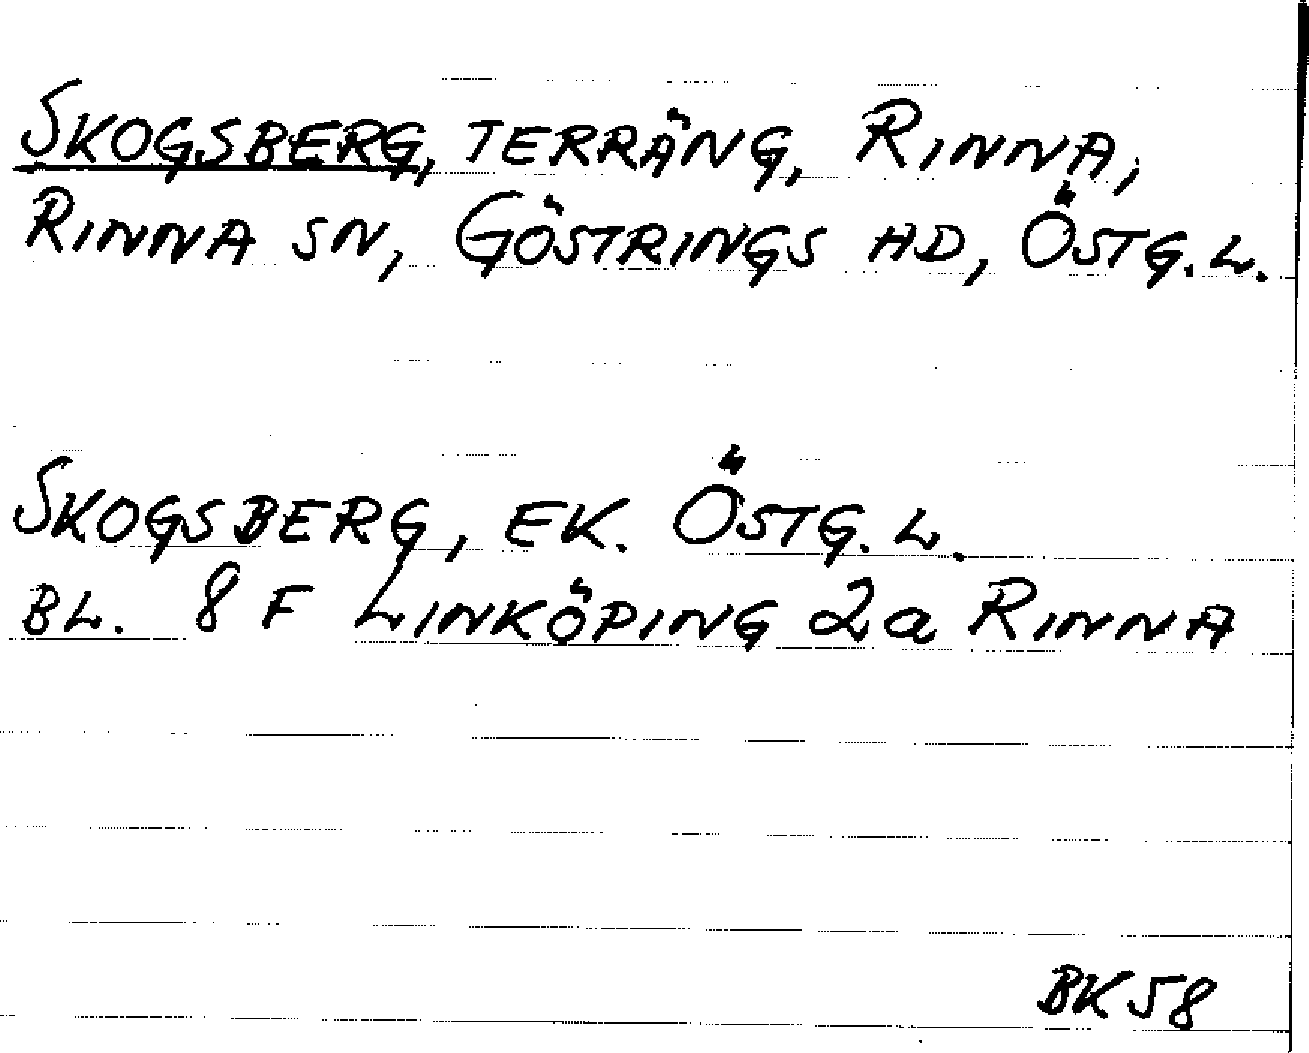 SKOGSBERG, TERRÄNG, RINNA,
RINNA SN, GÖSTRINGS HD, ÖSTG.L.
SKOGSBERG, EK. ÖSTG.L.
BL. 8 F LINKÖPING 2a RINNA
BK 58